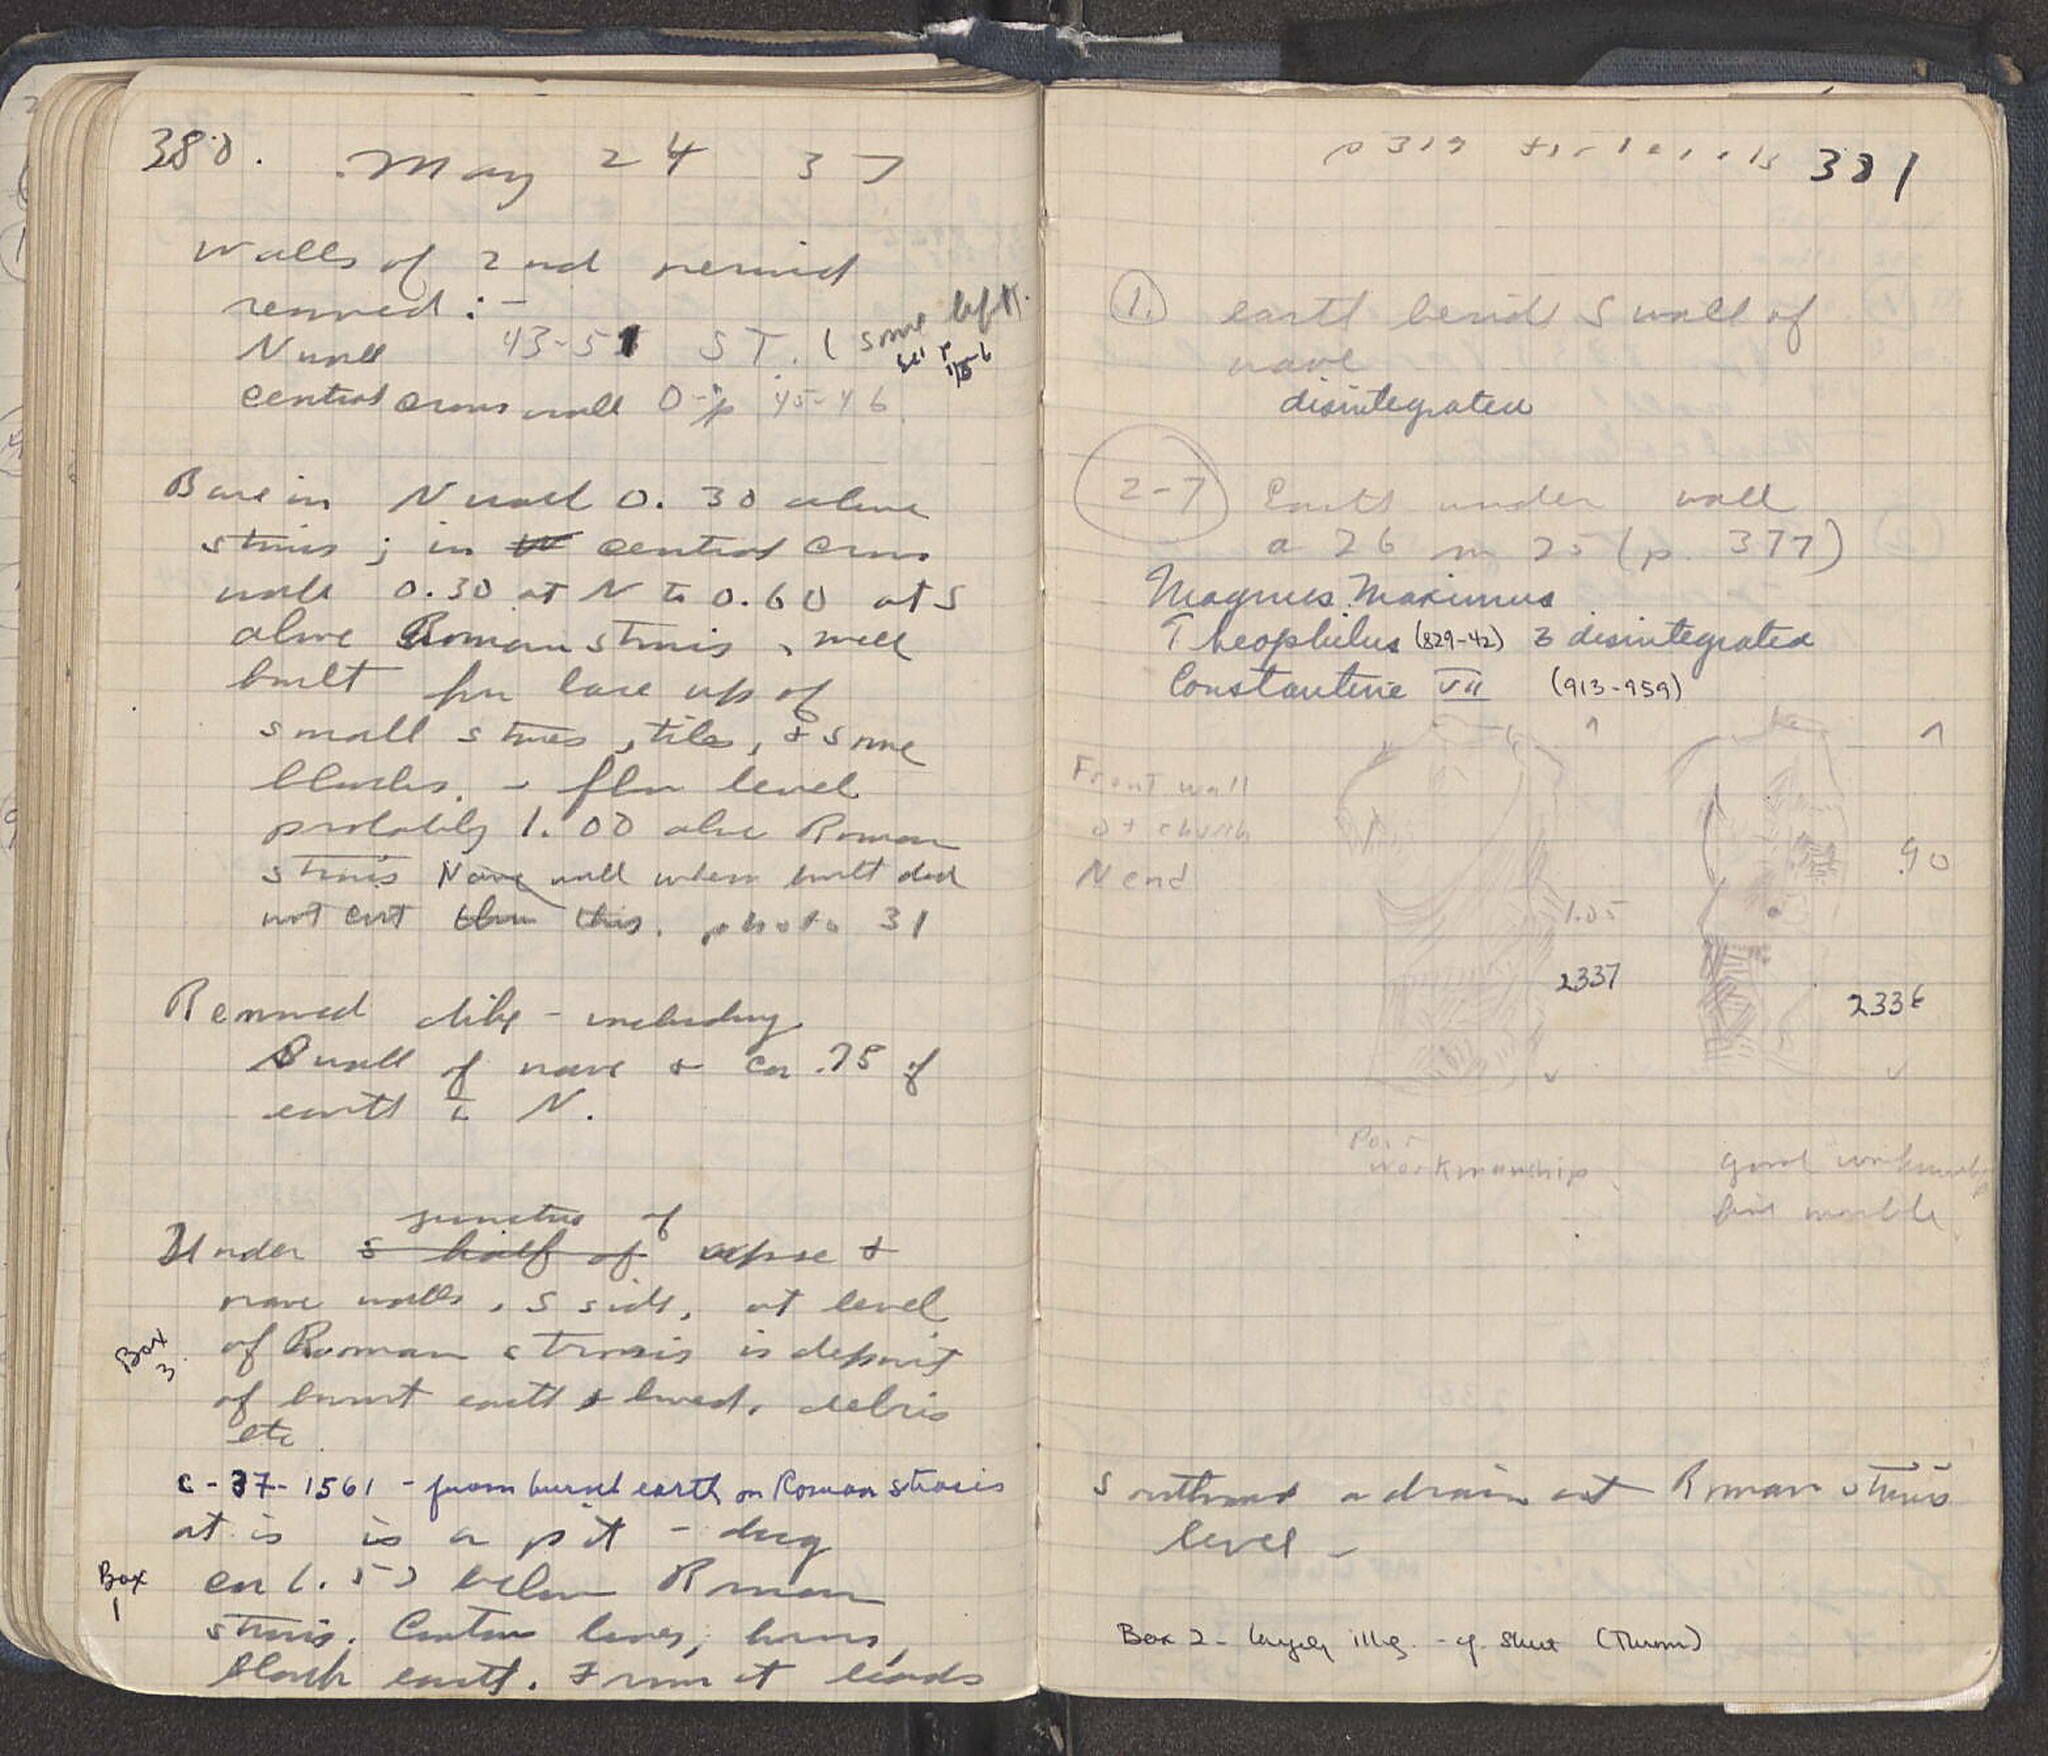 380. May 24 37
Walls of 2nd period
removed: -
N wall 43-51 ST. (some left
see p
central cross wall O-P 45-46
Base in N wall 0.30 above
strosis; in central cross
wall 0.30 at N to 0.60 at S
above Roman strosis, well
built for base up of
small stones, tiles, & some
blocks. - floor level
probably 1.00 above Roman
strosis Nave wall when built did
not cut this. photo 31
Removed dike - including
S wall of nave & ca .75 of
earth to N.
junction of
Under s half of apse &
nave walls, S side, at level
Box
3
of Roman strosis is deposit
of burnt earth & debris
etc
c-37-1561 - from burnt earth on Roman strosis
at is is a pit - dug
Box
1
ca 1.50 below Roman
strosis. Contains bones,
black earth. From it leads
p 319 for levels 381
1. earth behind S wall of
nave
disintegrated
2-7 Earth under wall
a 26 m 25 (p. 377)
Magnus Maximus
Theophilus (829-42) 3 disintegrated
Constantine VII (913-959)
Front wall
of church
N end
.90
1.05
2337
2336
Poor
workmanship
good workmanship
fine marble
Southward a drain at Roman strosis
level -
Box 2 - largely illeg. - cf. shut (Thrown)